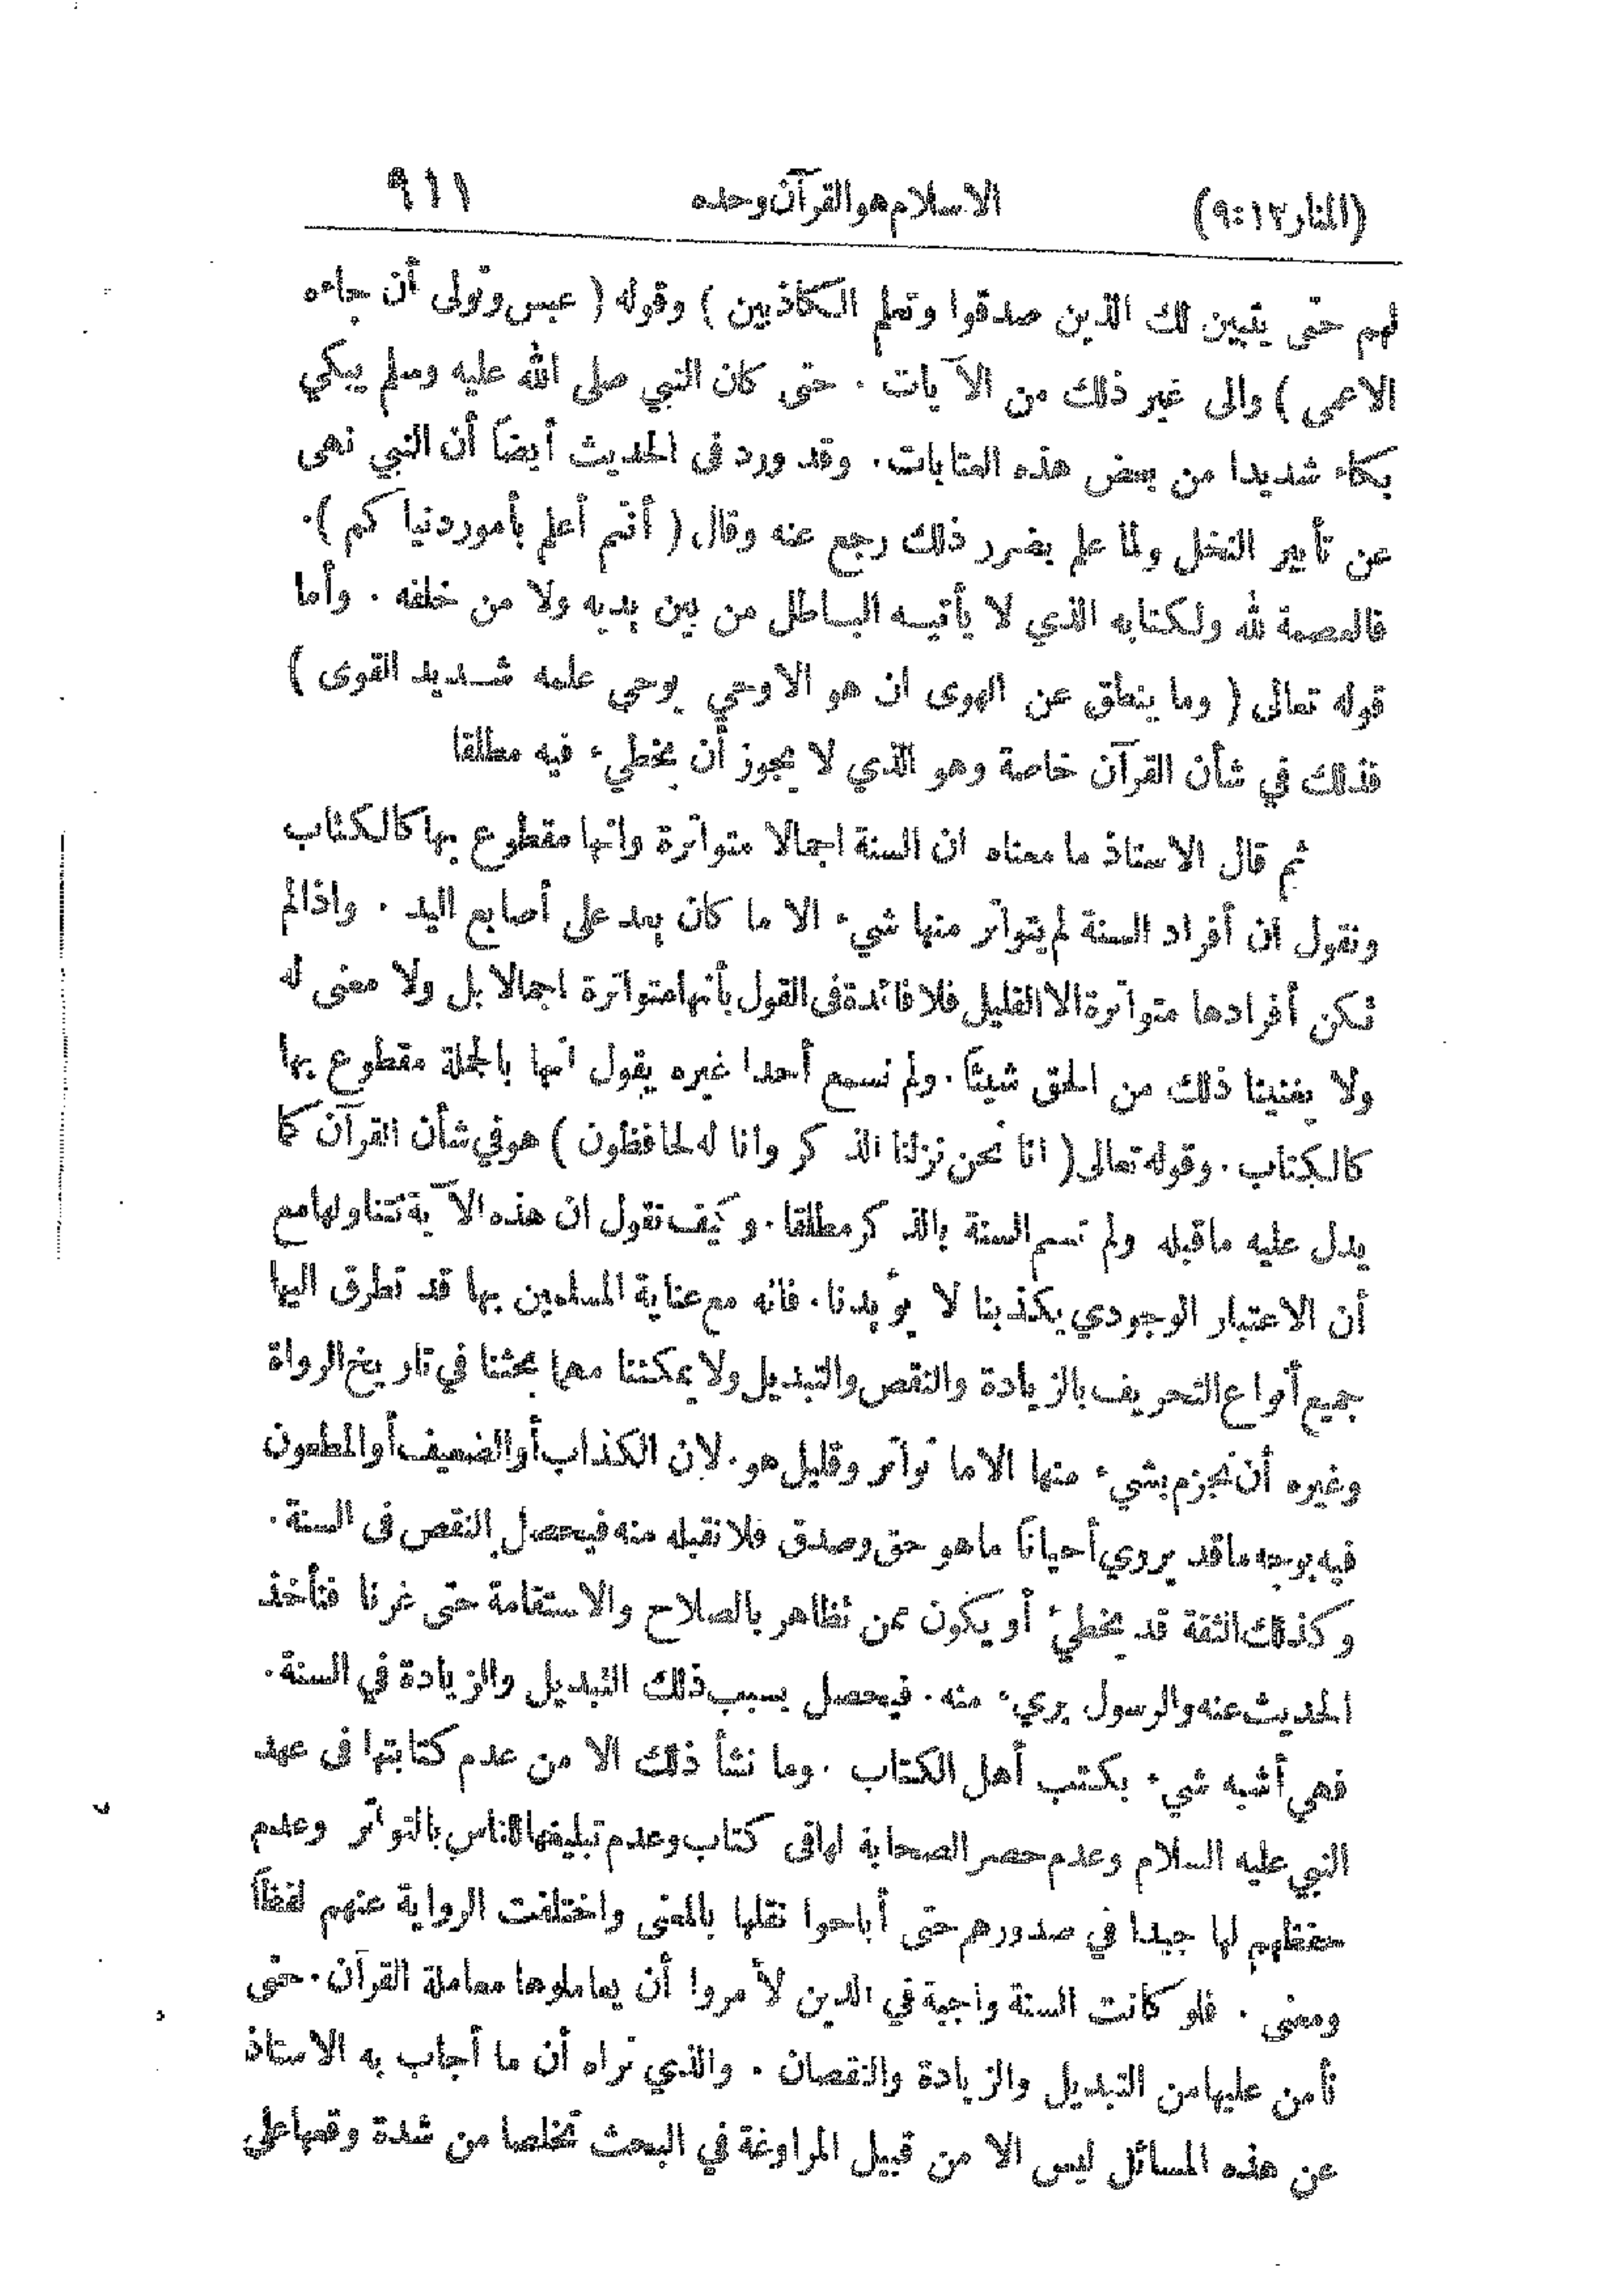 (المنار ١٢:٩) الاسلام هو القرآن وحده ٩١١
لهم حتى يتبين لك الذين صدقوا وتعلم الكاذبين ) وقوله ( عبس وتولى أن جاءه
الاعمى ) والى غير ذلك من الآيات . حتى كان النبي صلى الله عليه وسلم يبكي
بكاء شديدا من بعض هذه العتابات . وقد ورد في الحديث أيضاً أن النبي نهى
عن تأبير النخل ولما علم بضرر ذلك رجع عنه وقال ( أنتم أعلم بأمور دنياكم ) .
فالعصمة لله ولكتابه الذي لا يأتيه الباطل من بين يديه ولا من خلفه . وأما
قوله تعالى ( وما ينطق عن الهوى ان هو الا وحي يوحى علمه شديد القوى )
فذلك في شأن القرآن خاصة وهو الذي لا يجوز أن يخطيء فيه مطلقا
ثم قال الاستاذ ما معناه ان السنة اجمالا متواترة وانها مقطوع بها كالكتاب
ونقول ان أفراد السنة لم يتواتر منها شيء الا ما كان يعد على أصابع اليد . واذا لم
تكن أفرادها متواترة الا القليل فلا فائدة في القول بأنها متواترة اجمالا بل ولا معنى له
ولا يغنينا ذلك من الحق شيئاً . ولم نسمع أحدا غيره يقول انها بالجملة مقطوع بها
كالكتاب . وقوله تعالى ( انا نحن نزلنا الذكر وانا له لحافظون ) هو في شأن القرآن كما
يدل عليه ما قبله ولم تسم السنة بالذكر مطلقا . وكيف نقول ان هذه الآية تتناولها مع
أن الاعتبار الوجودي يكذبنا لا يؤيدنا . فانه مع عناية المسلمين بها قد تطرق اليها
جميع أنواع التحريف بالزيادة والنقص والتبديل ولا يمكننا مهما بحثنا في تاريخ الرواة
وغيره أن نجزم بشيء منها الا ما تواتر وقليل هو . لان الكذاب أو الضعيف أو المطعون
فيه بوجه ما قد يروي أحياناً ما هو حق وصدق فلا نقبله منه فيحصل النقص في السنة .
وكذلك الثقة قد يخطئ أو يكون ممن تظاهر بالصلاح والاستقامة حتى غرنا فنأخذ
الحديث عنه والرسول بريء منه . فيحصل بسبب ذلك التبديل والزيادة في السنة .
فهي أشبه شيء بكتب أهل الكتاب . وما نشأ ذلك الا من عدم كتابتها في عهد
النبي عليه السلام وعدم حصر الصحابة لها في كتاب وعدم تبليغها للناس بالتواتر وعدم
حفظهم لها جيدا في صدورهم حتى أباحوا نقلها بالمعنى واختلفت الرواية عنهم لفظاً
ومعنى . فلو كانت السنة واجبة في الدين لأمروا أن يعاملوها معاملة القرآن . حتى
نأمن عليها من التبديل والزيادة والنقصان . والذي نراه أن ما أجاب به الاستاذ
عن هذه المسائل ليس الا من قبيل المراوغة في البحث تخلصا من شدة وقعها على